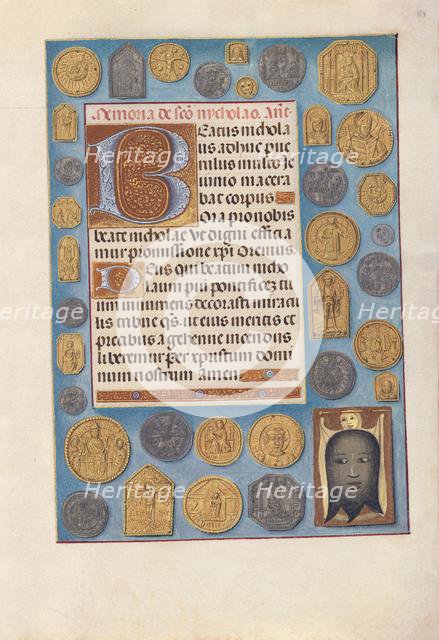 Memoria de sco nycholao. Ane
Beatus nichola
us adhuc pue
rulus multo ie
iunio macera
bat corpus
Ora pro nobis
beate nicholae Ut digni effici a
mur promissione xpi Oremus.
Deus qui beatum nicho
laum pium pontificez tu
um inmens decorasti miracu
lis tribue qs. ut eius meritis et
precibus a gehenne incendiis
liberemur per xpristum domi
num nostrum amen
Heritage
Heritage
Heritage
Heritage
Heritage
Heritage
Heritage
Heritage
Heritage
Heritage
Heritage